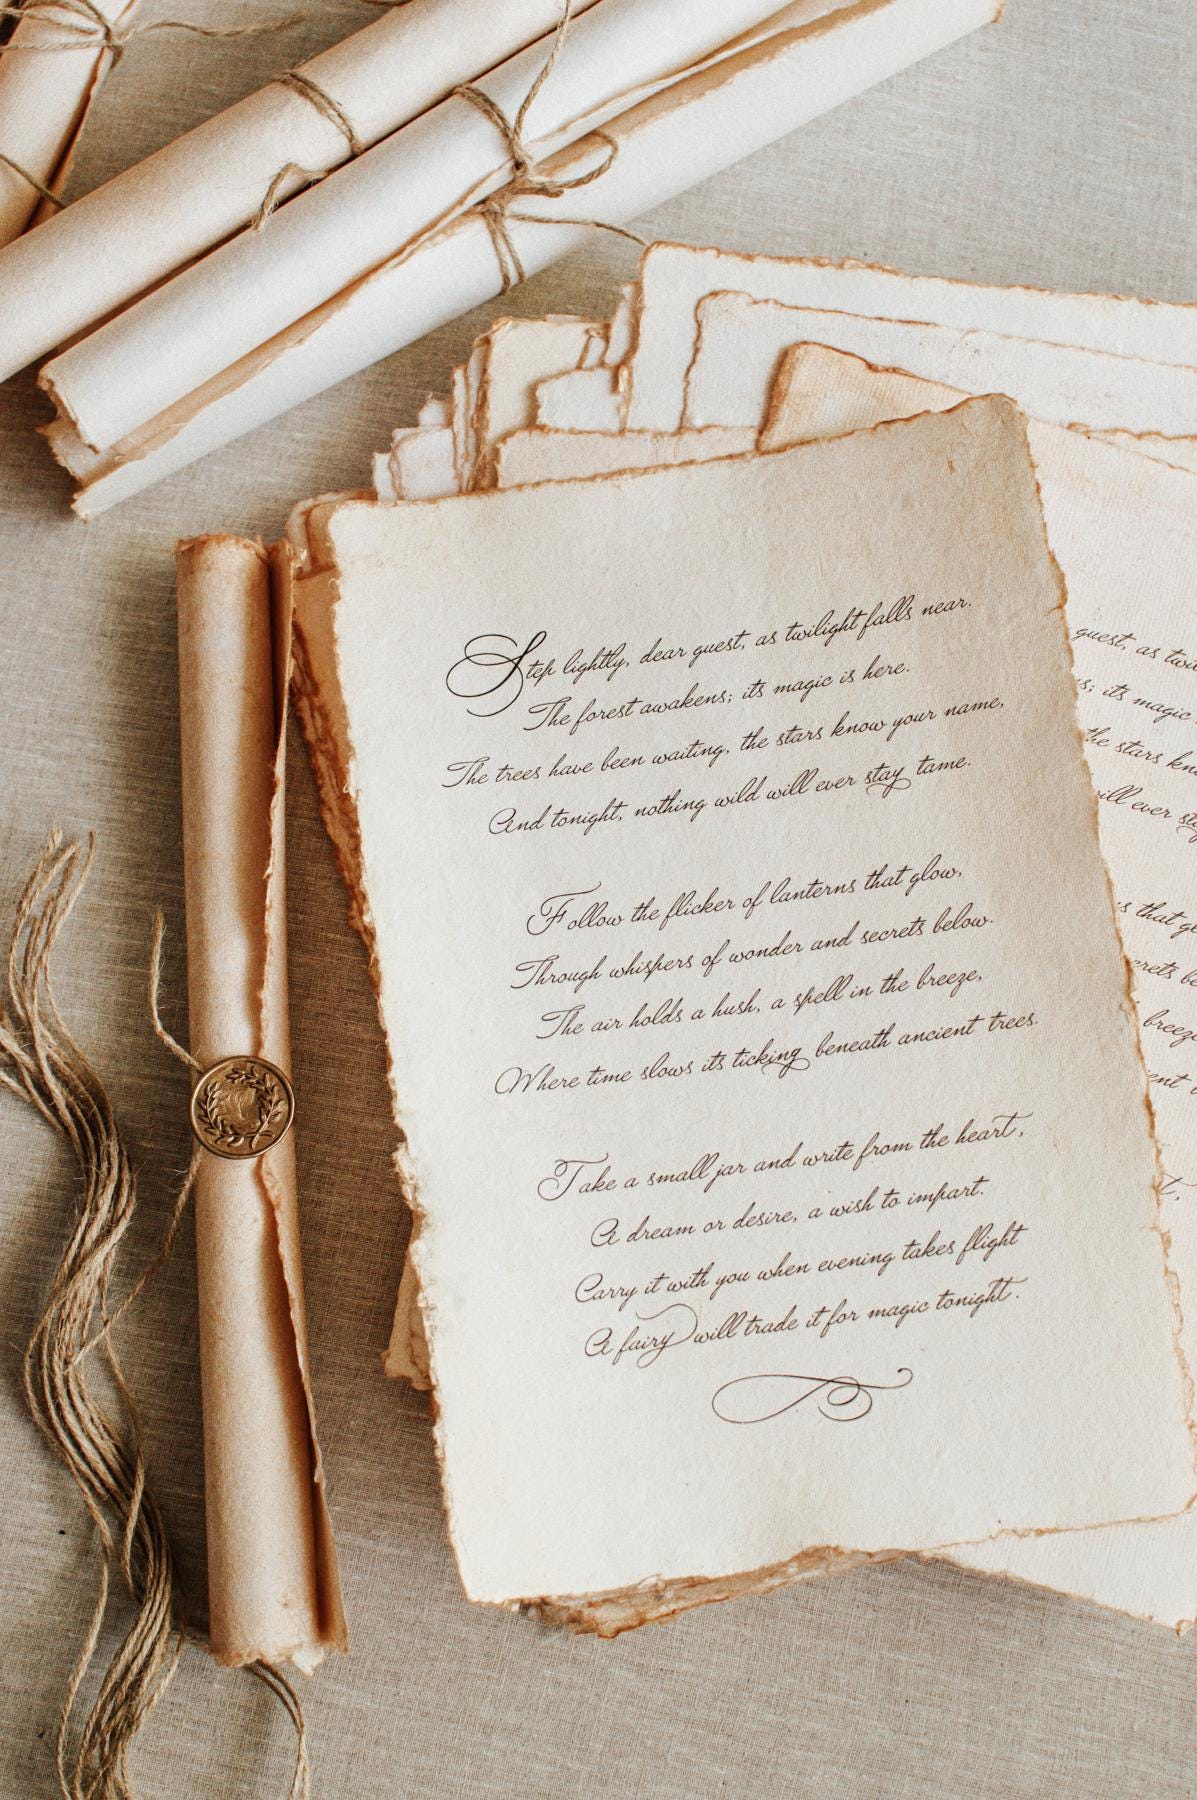 Step lightly, dear guest, as twilight falls near.
The forest awakens; its magic is here.
The trees have been waiting, the stars know your name,
And tonight, nothing wild will ever stay tame.
Follow the flicker of lanterns that glow,
Through whispers of wonder and secrets below.
The air holds a hush, a spell in the breeze,
Where time slows its ticking beneath ancient trees.
Take a small jar and write from the heart,
A dream or desire, a wish to impart.
Carry it with you when evening takes flight
A fairy will trade it for magic tonight.
guest, as twi
s; its magic
the stars kn
ill ever st
s that gl
crets be
breeze
ent t
t,